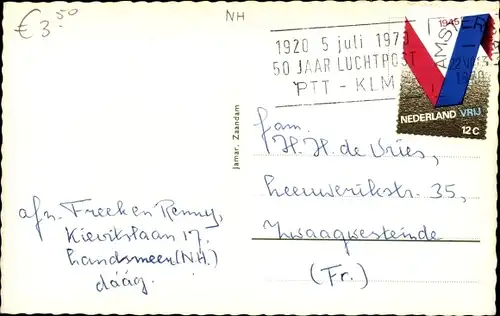 € 3.50
NH
1920 5 juli 1970
50 JAAR LUCHTPOST
PTT - KLM
AMSTER
1945
NEDERLAND VRIJ
12c
Jamar, Zaandam
fam.
H. H. de Vries,
Leeuwerikstr. 35,
Zwaagwesteinde
(Fr.)
afz. Freeken Renny,
Kievitslaan 17,
Landsmeer (NH.)
dáág.